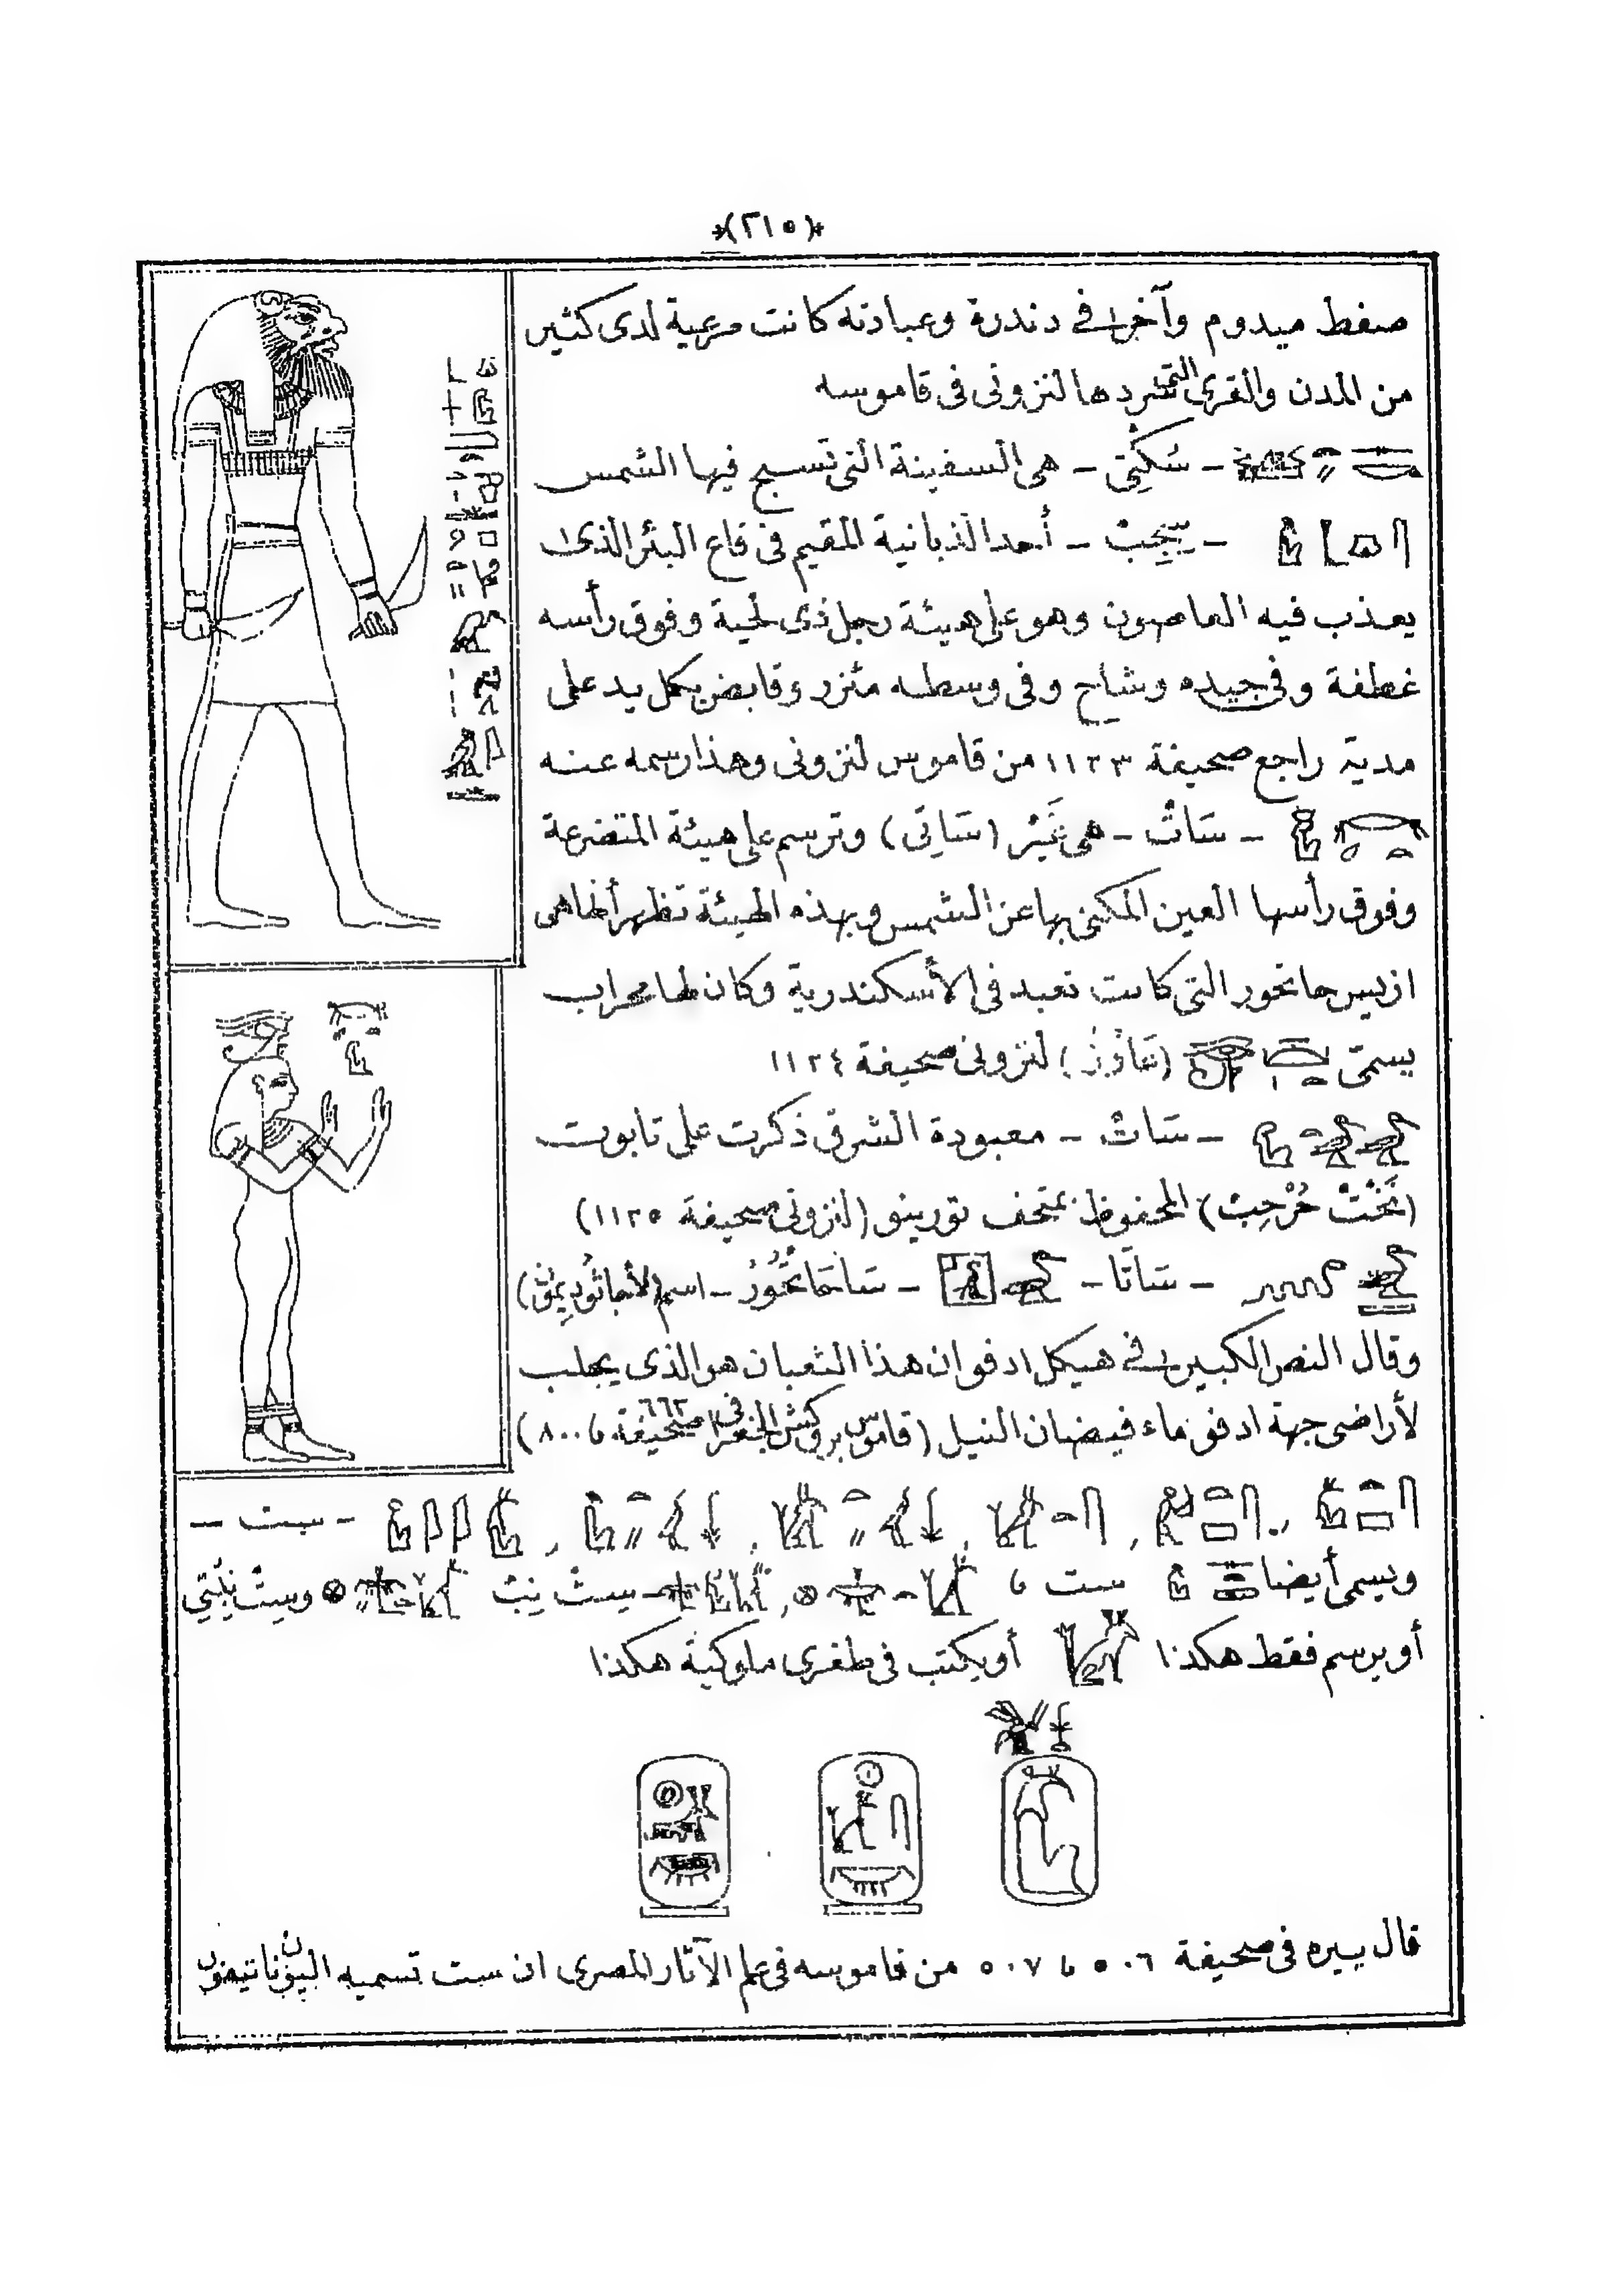 (٢١٥)
صفط ميدوم وآخر في دندرة وعبادته كانت مرعية لدى كثير
من المدن والقرى التى سردها لنزونى فى قاموسه
- سُكْتِى - هى السفينة التى تسبح فيها الشمس
- أحد الزبانية المقيم فى قاع البئر الذى
يعذب فيه العاصون وهو على هيئة رجل ذى لحية وفوق رأسه
غطفة وفى جيده وشاح وفى وسطه مئزر وقابض بكل يد على
مدية راجع صحيفة ١١٢٣ من قاموس لنزونى وهذا رسمه عنه
- سَاتْ - هى غَيْر (سَاتِى) وترسم على هيئة المتضرعة
وفوق رأسها العين المكنى بها عن الشمس وبهذه الهيئة تظهر أنها هى
ازيس حاتحور التى كانت تعبد فى الأسكندرية وكان لها محراب
يسمى لنزونى صحيفة ١١٢٤
- سَاتْ - معبودة الشرق ذكرت على تابوت
المحفوظ بمتحف تورينو (لنزونى صحيفة ١١٢٥)
- سَاتَا - - اسم
وقال النص الكبير في هيكل ادفو ان هذا الثعبان هو الذى يجلب
لأراضى جهة ادفو ماء فيضان النيل (قاموس بروكش الجغرا فى صحيفة ٦٦٢ ٨٠٠)
- ست -
ويسمى أيضا ست - سِتْ نِبْتْ وسِتْ نِبْتِى
أو يرسم فقط هكذا أو يكتب فى طغرى ملوكية هكذا
قال بيره فى صحيفة ٥٠٦ ٥٠٧ من قاموسه فى علم الآثار المصرى ان ست تسميه اليونان تيفون